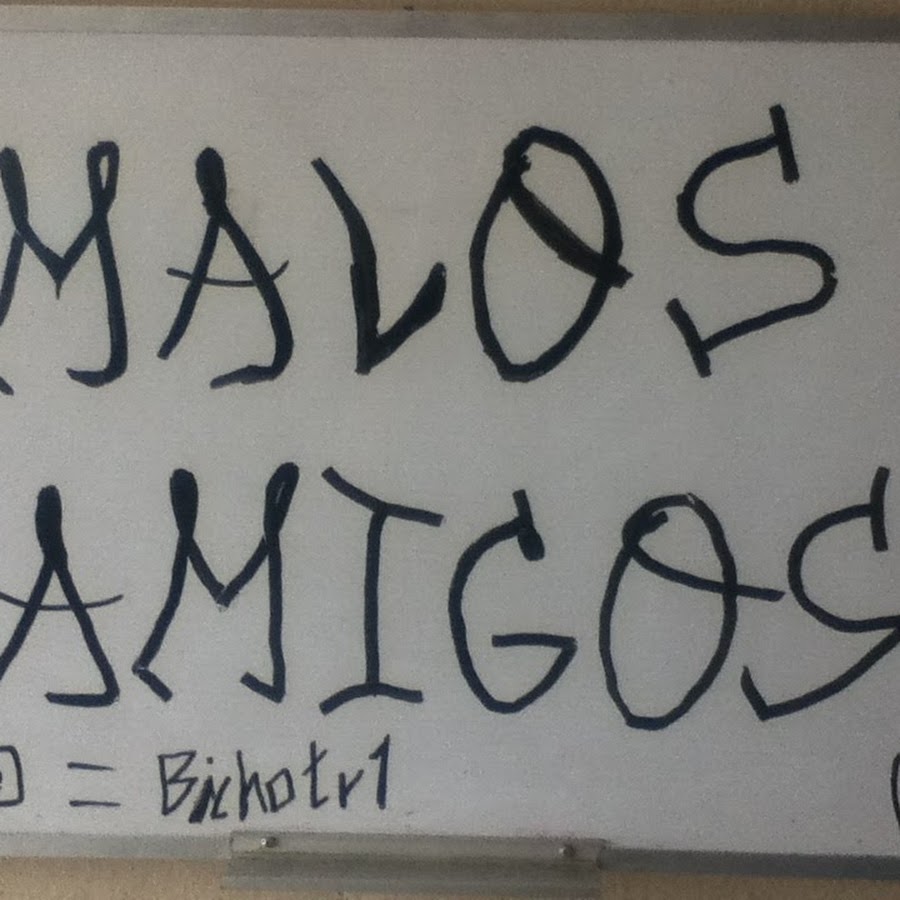 MALOS
AMIGOS
= Bichotr1